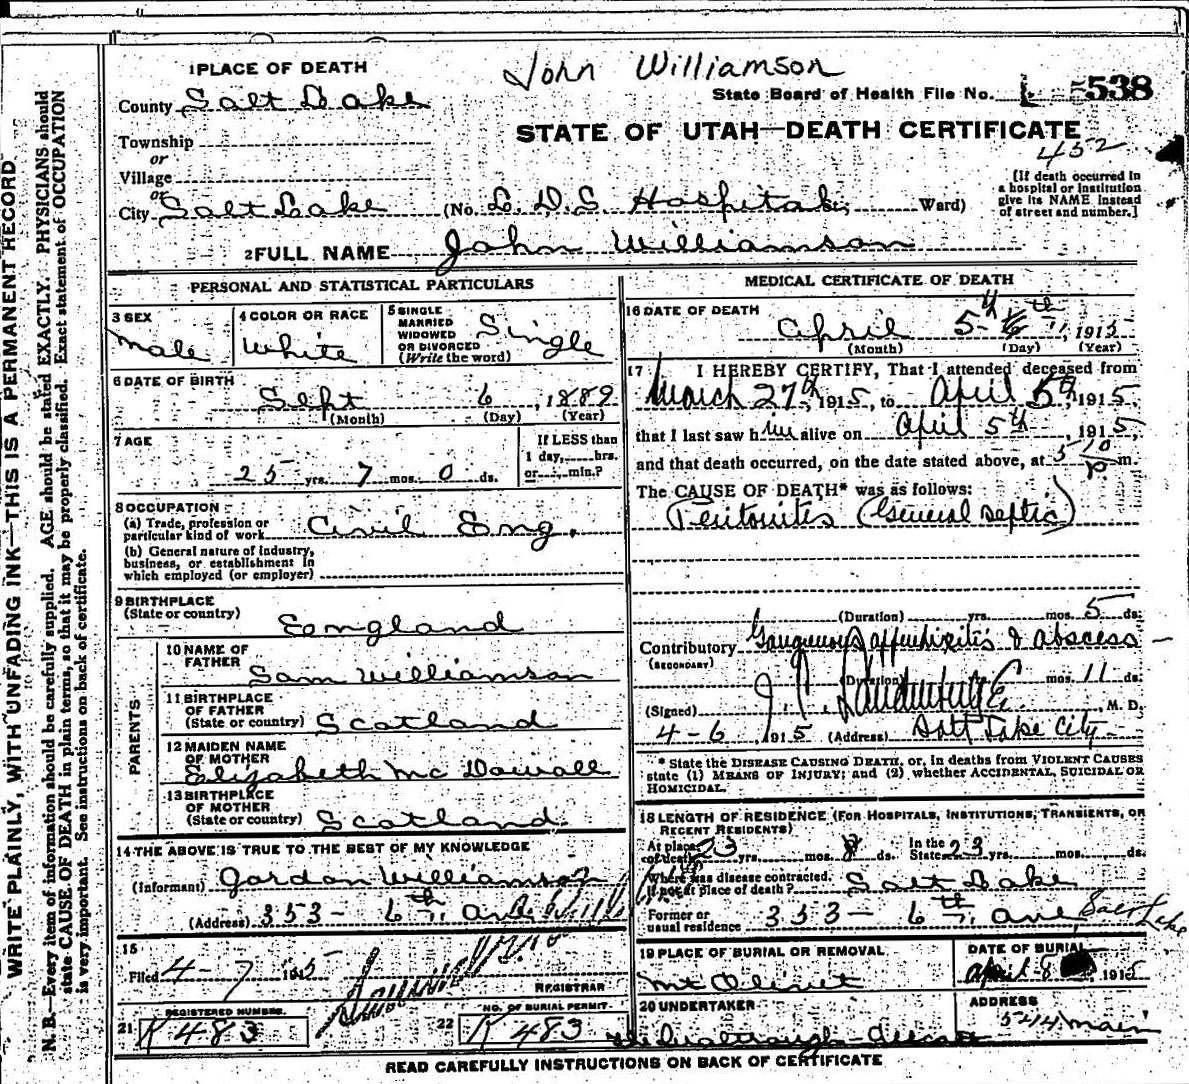 John Williamson
1 PLACE OF DEATH
State Board of Health File No. 538
County Salt Lake
STATE OF UTAH—DEATH CERTIFICATE
Township
452
or
Village
or
City Salt Lake (No. L. D. S. Hospital St; Ward)
[If death occurred in
a hospital or institution
give its NAME instead
of street and number.]
2 FULL NAME John Williamson
PERSONAL AND STATISTICAL PARTICULARS
3 SEX
Male
4 COLOR OR RACE
White
5 SINGLE
MARRIED
WIDOWED
OR DIVORCED
(Write the word)
Single
6 DATE OF BIRTH
Sept 6, 1889
(Month) (Day) (Year)
7 AGE
25 yrs. 7 mos. 0 ds.
If LESS than
1 day, hrs.
or min.?
8 OCCUPATION
(a) Trade, profession or
particular kind of work Civil Eng.
(b) General nature of industry,
business, or establishment in
which employed (or employer)
9 BIRTHPLACE
(State or country)
Eongland
PARENTS
10 NAME OF
FATHER
Sam Williamson
11 BIRTHPLACE
OF FATHER
(State or country) Scotland
12 MAIDEN NAME
OF MOTHER
Elizabeth Mc Dowall
13 BIRTHPLACE
OF MOTHER
(State or country) Scotland
14 THE ABOVE IS TRUE TO THE BEST OF MY KNOWLEDGE
(Informant) Gordon Williamson
(Address) 353 - 6th. ave
15
Filed 4-7 1915
REGISTRAR
REGISTERED NUMBER.
21 K 483
NO. OF BURIAL PERMIT.
22 K 483
MEDICAL CERTIFICATE OF DEATH
16 DATE OF DEATH
April 5th, 1915
(Month) (Day) (Year)
17 I HEREBY CERTIFY, That I attended deceased from
March 27th, 1915, to April 5th, 1915,
that I last saw him alive on April 5th 1915,
and that death occurred, on the date stated above, at 5 10 p m.
The CAUSE OF DEATH* was as follows:
Peritonites (General septic)
(Duration) yrs. mos. 5 ds.
Contributory Gangrenous appendixitis & abscess
(SECONDARY)
(Duration) mos. 11 ds.
(Signed) M. D.
4-6 1915 (Address) Salt Lake City
* State the DISEASE CAUSING DEATH, or, in deaths from VIOLENT CAUSES
state (1) MEANS OF INJURY; and (2) whether ACCIDENTAL, SUICIDAL OR
HOMICIDAL.
18 LENGTH OF RESIDENCE (FOR HOSPITALS, INSTITUTIONS, TRANSIENTS, OR
RECENT RESIDENTS)
At place
of death 23 yrs. mos. 8 ds. In the
State 23 yrs. mos. ds.
Where was disease contracted,
if not at place of death? Salt Lake
Former or
usual residence 353 - 6th. ave Salt Lake
19 PLACE OF BURIAL OR REMOVAL
Mt Olivet
DATE OF BURIAL
April 8 1915
20 UNDERTAKER
ADDRESS
544 Main
READ CAREFULLY INSTRUCTIONS ON BACK OF CERTIFICATE
WRITE PLAINLY, WITH UNFADING INK—THIS IS A PERMANENT RECORD
N. B.—Every item of information should be carefully supplied. AGE should be stated EXACTLY. PHYSICIANS should
state CAUSE OF DEATH in plain terms, so that it may be properly classified. Exact statement of OCCUPATION
is very important. See instructions on back of certificate.